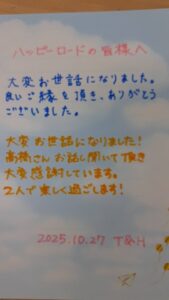 ハッピーロードの皆様へ
大変お世話になりました。
良いご縁を頂き、ありがとう
ございました。
大変お世話になりました！
高橋さんお話し聞いて頂き
大変感謝しています。
2人で楽しく過ごします！
2025.10.27 T&H